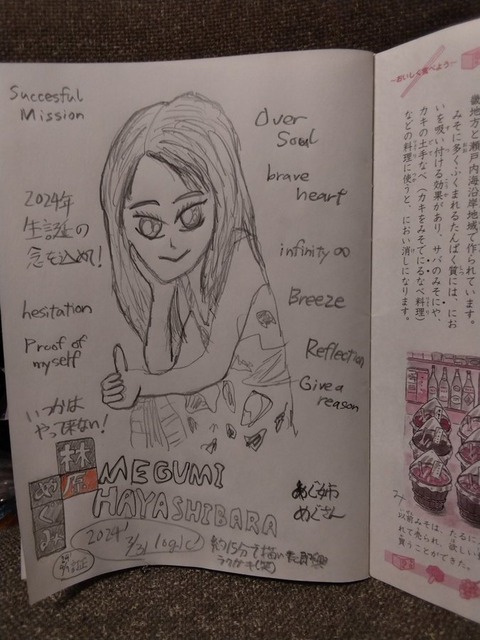 Succesful
Mission
2024年
生誕の
念を込めて!
hesitation
Proof of
myself
いつかは
Over
Soul
brave
heart
infinity ∞
Breeze
Reflection
Give a
reason
林原
めぐみ
MEGUMI
HAYASHIBARA
めぐ姉
めぐさん
2024'
約15分で描いた
ラクガキ(笑)
~おいしく食べよう~
畿地方と瀬戸内海沿岸地域で作られています。
みそに多くふくまれるたんぱく質には、にお
いを吸い付ける効果があり、サバのみそにや、
カキの土手なべ(カキをみそでにるなべ料理)
などの料理に使うと、におい消しになります。
み
以前みそは、たるに
れて売られ、欲しい
買うことができた。